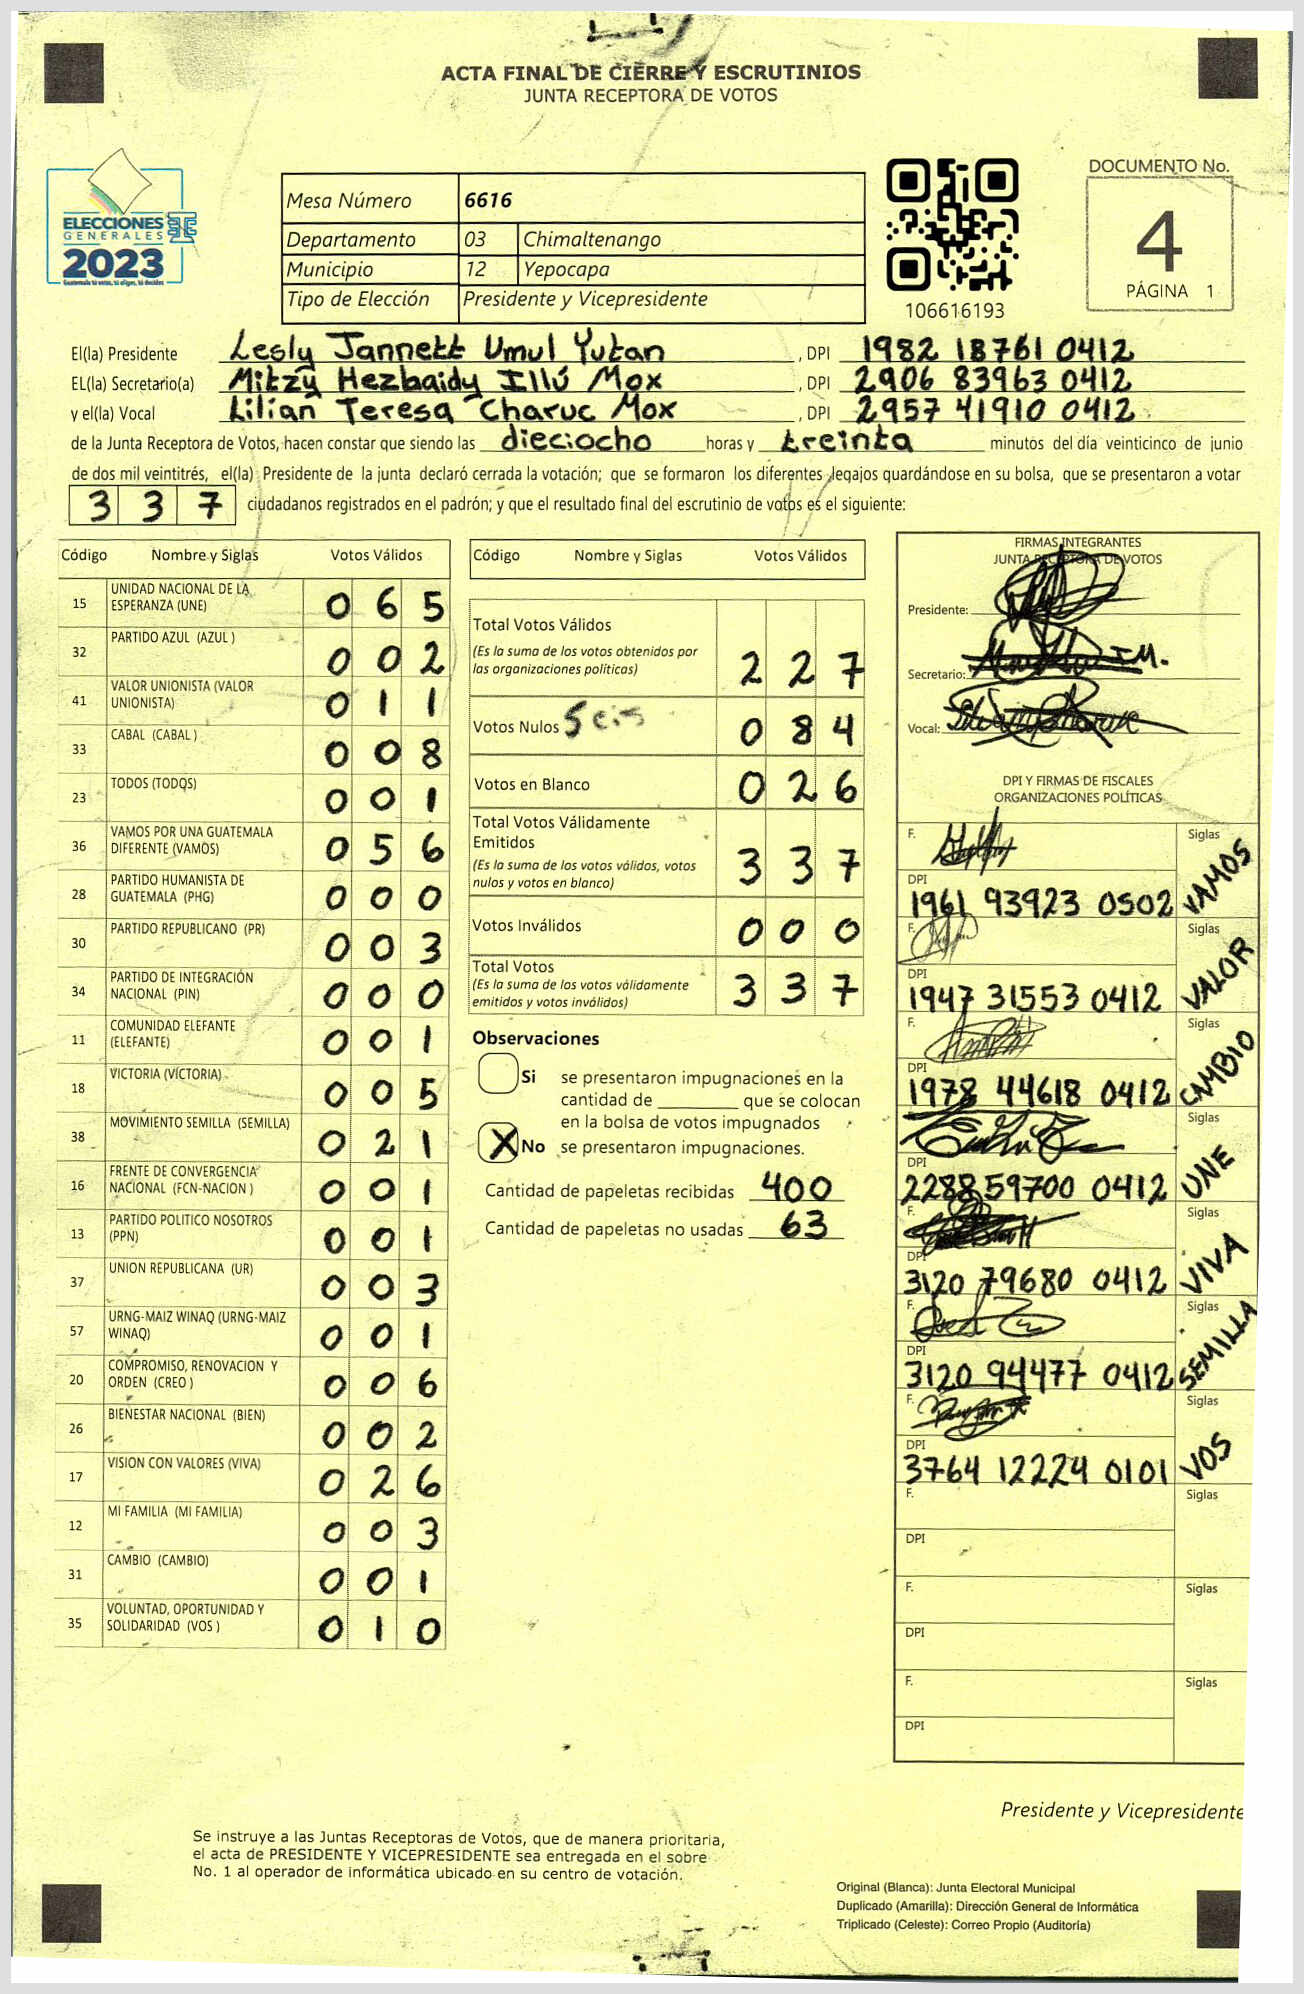 ACTA FINAL DE CIERRE Y ESCRUTINIOS
JUNTA RECEPTORA DE VOTOS
ELECCIONES
GENERALES
2023
Guatemala tú votas, tú eliges, tú decides
Mesa Número 6616
Departamento 03 Chimaltenango
Municipio 12 Yepocapa
Tipo de Elección Presidente y Vicepresidente
106616193
DOCUMENTO No.
4
PÁGINA 1
El(la) Presidente Lesly Jannett Umul Yutan, DPI 1982 18761 0412
EL(la) Secretario(a) Mitzy Hezbaidy Illú Mox, DPI 2906 83963 0412
y el(la) Vocal Lilian Teresa Charuc Mox, DPI 2957 41910 0412
de la Junta Receptora de Votos, hacen constar que siendo las dieciocho horas y treinta minutos del día veinticinco de junio
de dos mil veintitrés, el(la) Presidente de la junta declaró cerrada la votación; que se formaron los diferentes legajos guardándose en su bolsa, que se presentaron a votar
337 ciudadanos registrados en el padrón; y que el resultado final del escrutinio de votos es el siguiente:
Código Nombre y Siglas Votos Válidos
15 UNIDAD NACIONAL DE LA ESPERANZA (UNE) 065
32 PARTIDO AZUL (AZUL ) 002
41 VALOR UNIONISTA (VALOR UNIONISTA) 011
33 CABAL (CABAL ) 008
23 TODOS (TODOS) 001
36 VAMOS POR UNA GUATEMALA DIFERENTE (VAMOS) 056
28 PARTIDO HUMANISTA DE GUATEMALA (PHG) 000
30 PARTIDO REPUBLICANO (PR) 003
34 PARTIDO DE INTEGRACIÓN NACIONAL (PIN) 000
11 COMUNIDAD ELEFANTE (ELEFANTE) 001
18 VICTORIA (VICTORIA) 005
38 MOVIMIENTO SEMILLA (SEMILLA) 021
16 FRENTE DE CONVERGENCIA NACIONAL (FCN-NACION ) 001
13 PARTIDO POLITICO NOSOTROS (PPN) 001
37 UNION REPUBLICANA (UR) 003
57 URNG-MAIZ WINAQ (URNG-MAIZ WINAQ) 001
20 COMPROMISO, RENOVACION Y ORDEN (CREO ) 006
26 BIENESTAR NACIONAL (BIEN) 002
17 VISION CON VALORES (VIVA) 026
12 MI FAMILIA (MI FAMILIA) 003
31 CAMBIO (CAMBIO) 001
35 VOLUNTAD, OPORTUNIDAD Y SOLIDARIDAD (VOS ) 010
Código Nombre y Siglas Votos Válidos
Total Votos Válidos 227
(Es la suma de los votos obtenidos por
las organizaciones políticas)
Votos Nulos Seis 084
Votos en Blanco 026
Total Votos Válidamente
Emitidos 337
(Es la suma de los votos válidos, votos
nulos y votos en blanco)
Votos Inválidos 000
Total Votos 337
(Es la suma de los votos válidamente
emitidos y votos inválidos)
Observaciones
Si se presentaron impugnaciones en la
cantidad de ________ que se colocan
en la bolsa de votos impugnados
X No se presentaron impugnaciones.
Cantidad de papeletas recibidas 400
Cantidad de papeletas no usadas 63
FIRMAS INTEGRANTES
JUNTA RECEPTORA DE VOTOS
Presidente:
Secretario:
Vocal:
DPI Y FIRMAS DE FISCALES
ORGANIZACIONES POLÍTICAS
F. Siglas
DPI 1961 93923 0502 VAMOS
F. Siglas
DPI 1947 31553 0412 VALOR
F. Siglas
DPI 1978 44618 0412 CAMBIO
Siglas
DPI 2288 59700 0412 UNE
F. Siglas
DPI 3120 79680 0412 VIVA
F. Siglas
DPI 3120 94477 0412 SEMILLA
F. Siglas
DPI 3764 12224 0101 VOS
F. Siglas
DPI
F. Siglas
DPI
F. Siglas
DPI
Presidente y Vicepresidente
Se instruye a las Juntas Receptoras de Votos, que de manera prioritaria,
el acta de PRESIDENTE Y VICEPRESIDENTE sea entregada en el sobre
No. 1 al operador de informática ubicado en su centro de votación.
Original (Blanca): Junta Electoral Municipal
Duplicado (Amarilla): Dirección General de Informática
Triplicado (Celeste): Correo Propio (Auditoría)